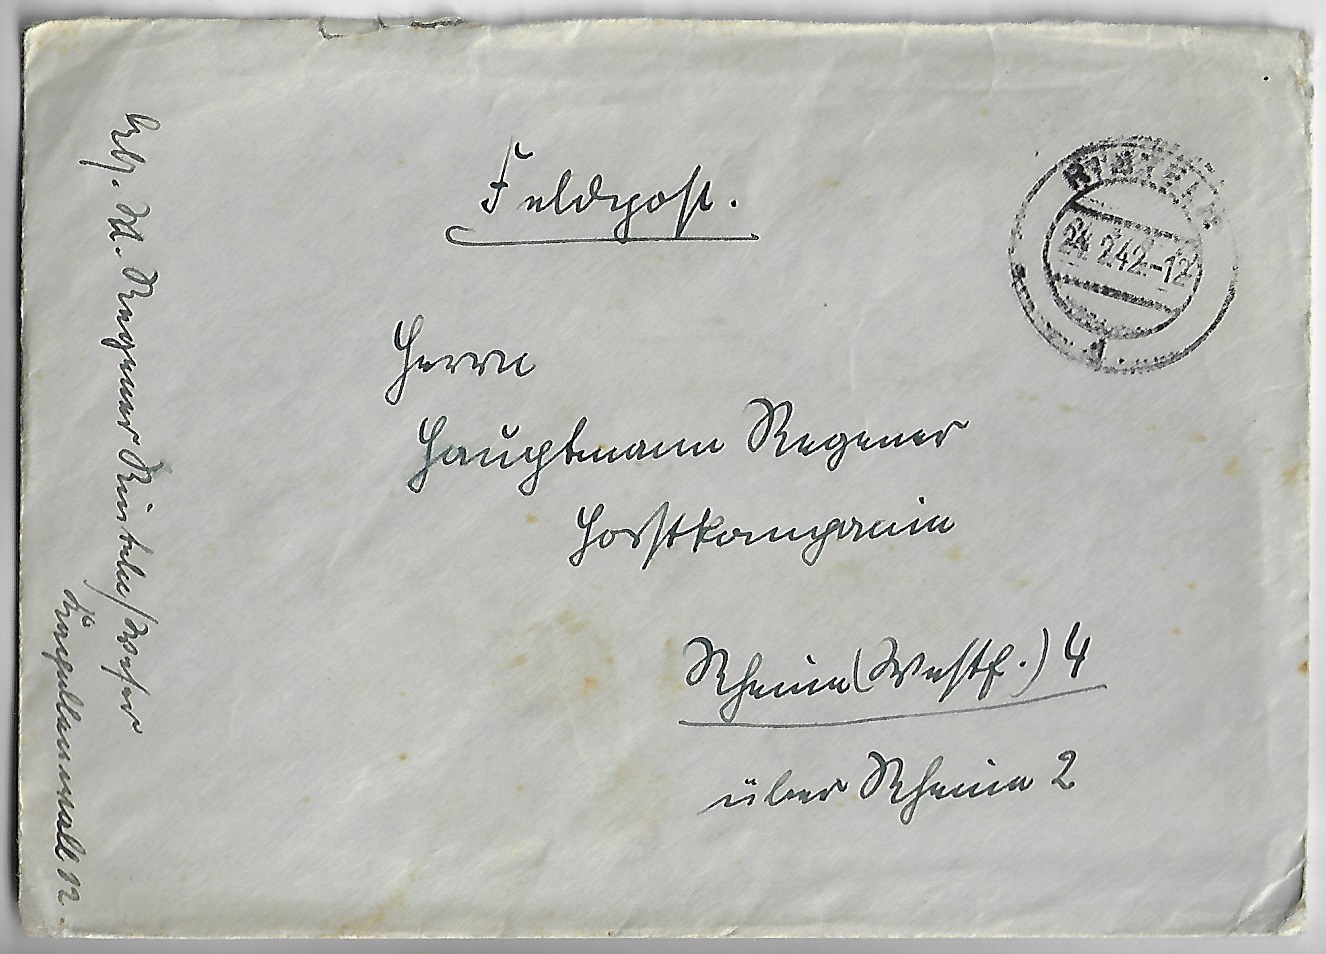 Feldpost.
24.2.42-12
Herrn
Hauptmann Regener
Horstkompanie
Rheine (Westf.) 4
über Rheine 2
Abs. M. Regener Rinteln/Weser
12.